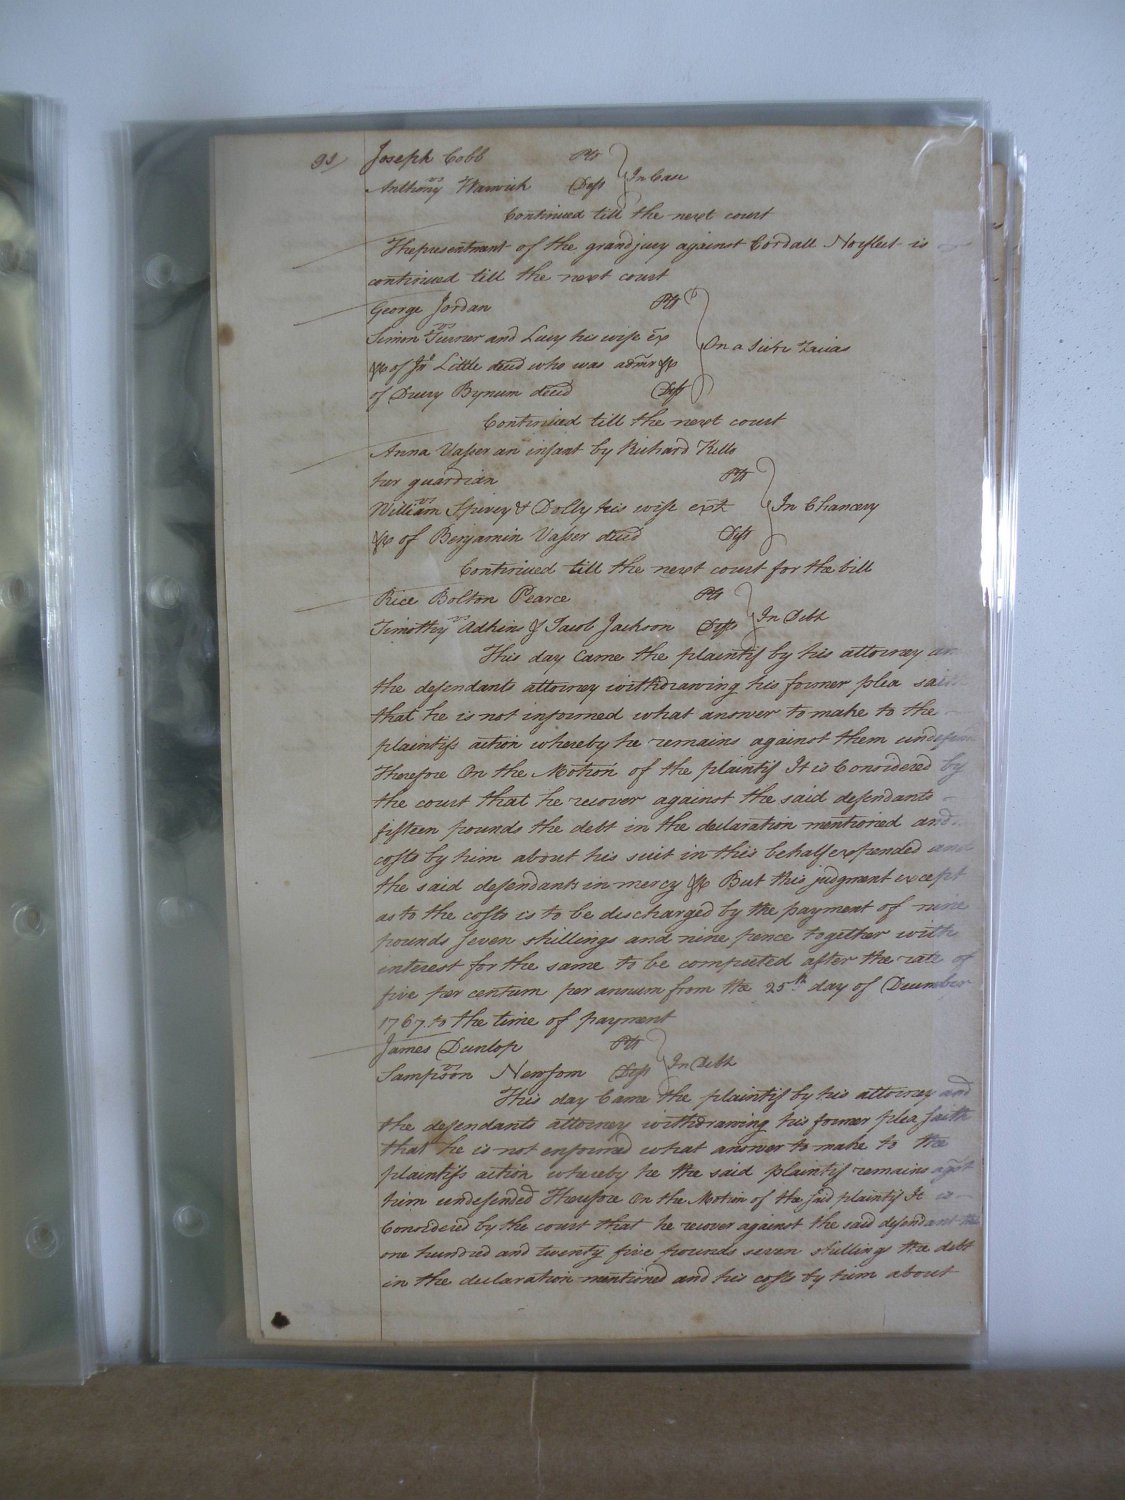 93/ Joseph Cobb Plt
vs
Anthony Warwick Deft } In Case
Continued till the next court
The presentment of the grandjury against Cordall Norfleet is
continued till the next court
George Jordan Plt
vs
Simon Turner and Lucy his wife Ex
&c of Jno Little decd who was admr &c } On a Scire Facias
of Drury Bynum decd Deft
Continued till the next court
Anna Vasser an infant by Richard Kello
her guardian Plt
vs
William Spivey & Dolly his wife ext } In Chancery
&c of Benjamin Vasser decd Deft
Continued till the next court for the bill
Rice Bolton Pearce Plt
vs
Timothy Adkins & Jacob Jackson Defts } In Debt
This day Came the plaintif by his attorney an
the defendants attorney withdrawing his former plea saith
that he is not informed what answer to make to the
plaintifs action whereby he remains against them undefend
Therefore On the Motion of the plaintif It is Considered by
the court that he recover against the said defendants
fifteen pounds the debt in the declaration mentioned and
costs by him about his suit in this behalf expended and
the said defendants in mercy &c But this judgment except
as to the costs is to be discharged by the payment of nine
pounds seven shillings and nine pence together with
interest for the same to be computed after the rate of
five per centum per annum from the 25th day of December
1767 to the time of payment
James Dunlop Plt
vs
Sampson Newsom Deft } In Debt
This day Came the plaintif by his attorney and
the defendants attorney withdrawing his former plea saith
that he is not enformed what answer to make to the
plaintifs action whereby he the said plaintif remains agst
him undefended Therefore On the Motion of the said plaintif It is
Considered by the court that he recover against the said defendant the
one hundred and twenty five pounds seven shillings the debt
in the declaration mentioned and his costs by him about